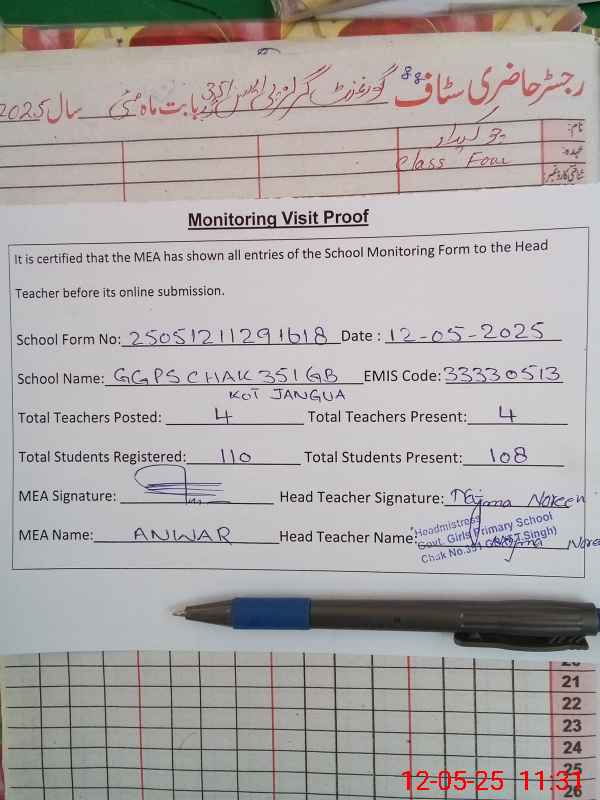 رجسٹر حاضری سٹاف گورنمنٹ گرلز پی ایس 351 بابت ماہ مئی سال 2025
نام: چوکیدار
عہدہ: Class Four
شناختی کارڈ نمبر:
Monitoring Visit Proof
It is certified that the MEA has shown all entries of the School Monitoring Form to the Head
Teacher before its online submission.
School Form No: 25051211291618 Date : 12-05-2025
School Name: GGPS CHAK 351 GB EMIS Code: 33330513
KOT JANGUA
Total Teachers Posted: 4 Total Teachers Present: 4
Total Students Registered: 110 Total Students Present: 108
MEA Signature: Head Teacher Signature: Najma Noreen
MEA Name: ANWAR Head Teacher Name: Najma Noree
Headmistress
Govt. Girls Primary School
Chak No.351 G.B (T.T.Singh)
20
21
22
23
24
25
26
12-05-25 11:31